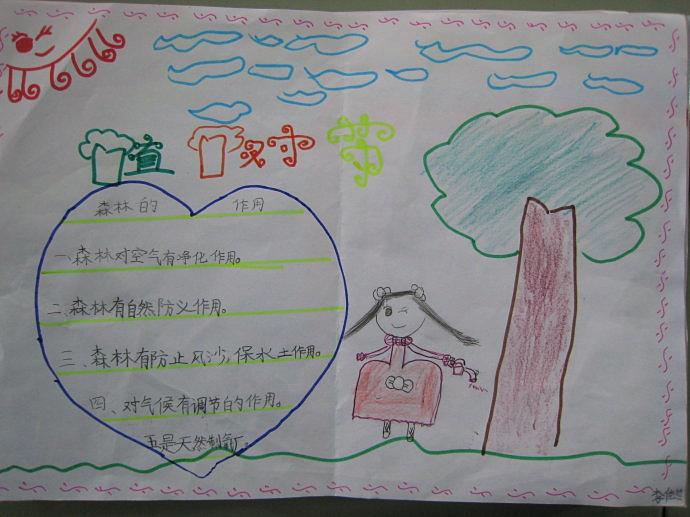 植树节
森林的 作用
一、森林对空气有净化作用。
二、森林有自然防义作用。
三、森林有防止风沙,保水土作用。
四、对气候有调节的作用。
五是天然制氧厂。